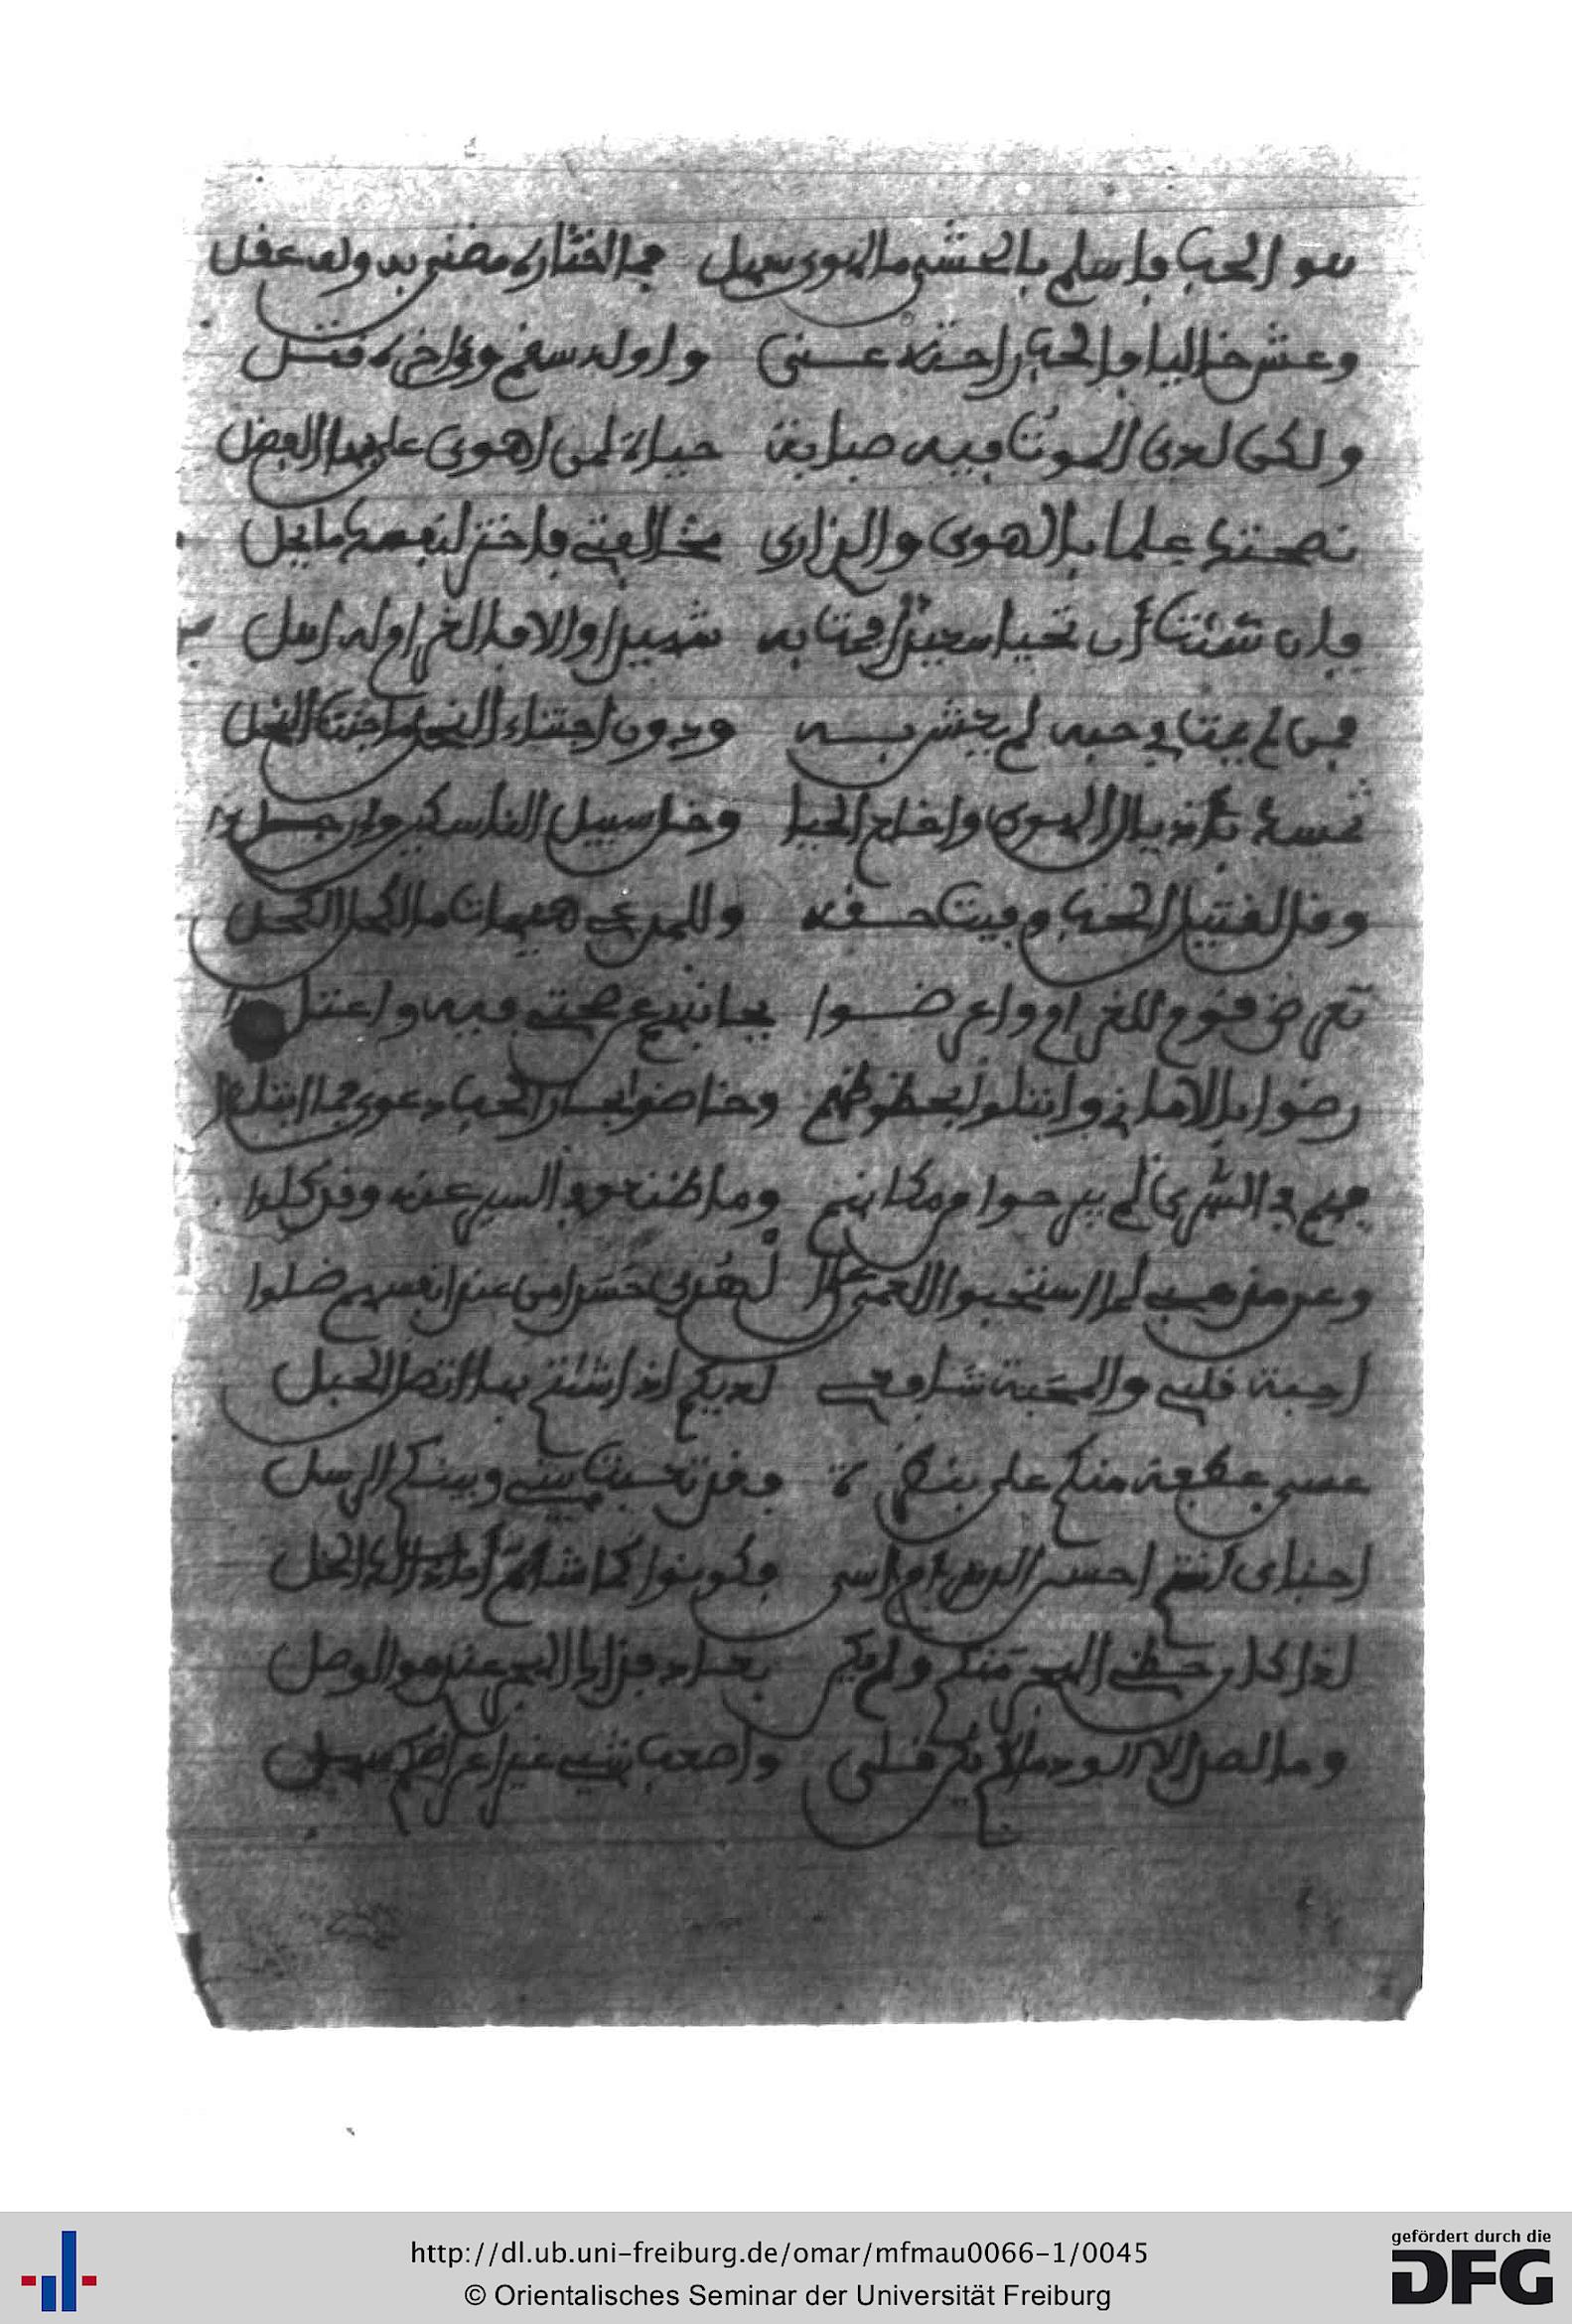 هو الحب فاسلم بالحشى ما الهوى سهل فما اختاره مضنى به وله عقل
وعش خاليا فالحب راحته عنى واوله سقم وءاخره قتل
ولكن لدى الموت فيه صبابة حياة لمن اهوى على بها الفضل
نصحتك علما بالهوى والذى ارى مخالفتى فاختر لنفسك ما يحل
فإن شئت أن تحيا سعيدا فمت به شهيدا والا فالغرام له اهل
فمن لم يمت في حبه لم يعش به ودون اجتناء النحل ما جنت النحل
تمسك بأذيال الهوى واخلع الحيا وخل سبيل الناسكين وان جلوا
وقل لقتيل الحب وفيت حقه وللمدعي هيهات ما الكحل الكحل
تعرض قوم للغرام واعرضوا بجانبهم عن صحتي فيه واعتلوا
رضوا بالاماني وابتلوا بحظوظهم وخاضوا بحار الحب دعوى فما ابتلوا
فهم في السرى لم يبرحوا من مكانهم وما ظعنوا في السير عنه وقد كلوا
وعن مذهبي لما استحبوا العمى على الهدى حسدا من عند انفسهم ضلوا
احبة قلبي والمحبة شافعي لديكم اذا شئتم بها اتصل الحبل
عسى عطفة منكم علي بنظرة فقد تعبت بيني وبينكم الرسل
احباي انتم احسن الدهر ام اسى فكونوا كما شئتم أنا ذلك الخل
اذا كان حظي الهجر منكم ولم يكن بعاد فذاك الهجر عندي هو الوصل
وما الصد الا الود ما لم يكن قلى واصعب شيء غير اعراضكم سهل
http://dl.ub.uni-freiburg.de/omar/mfmau0066-1/0045
© Orientalisches Seminar der Universität Freiburg
gefördert durch die
DFG